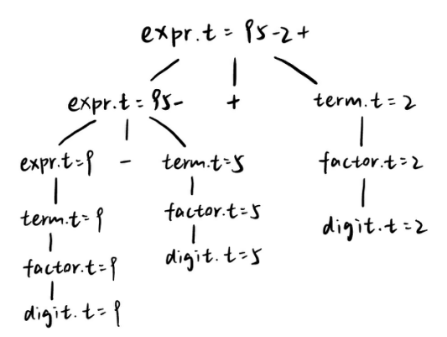 expr.t = 95-2+
expr.t = 95- + term.t = 2
expr.t=9 - term.t=5 factor.t=2
term.t=9 factor.t=5 digit.t=2
factor.t=9 digit.t=5
digit.t=9